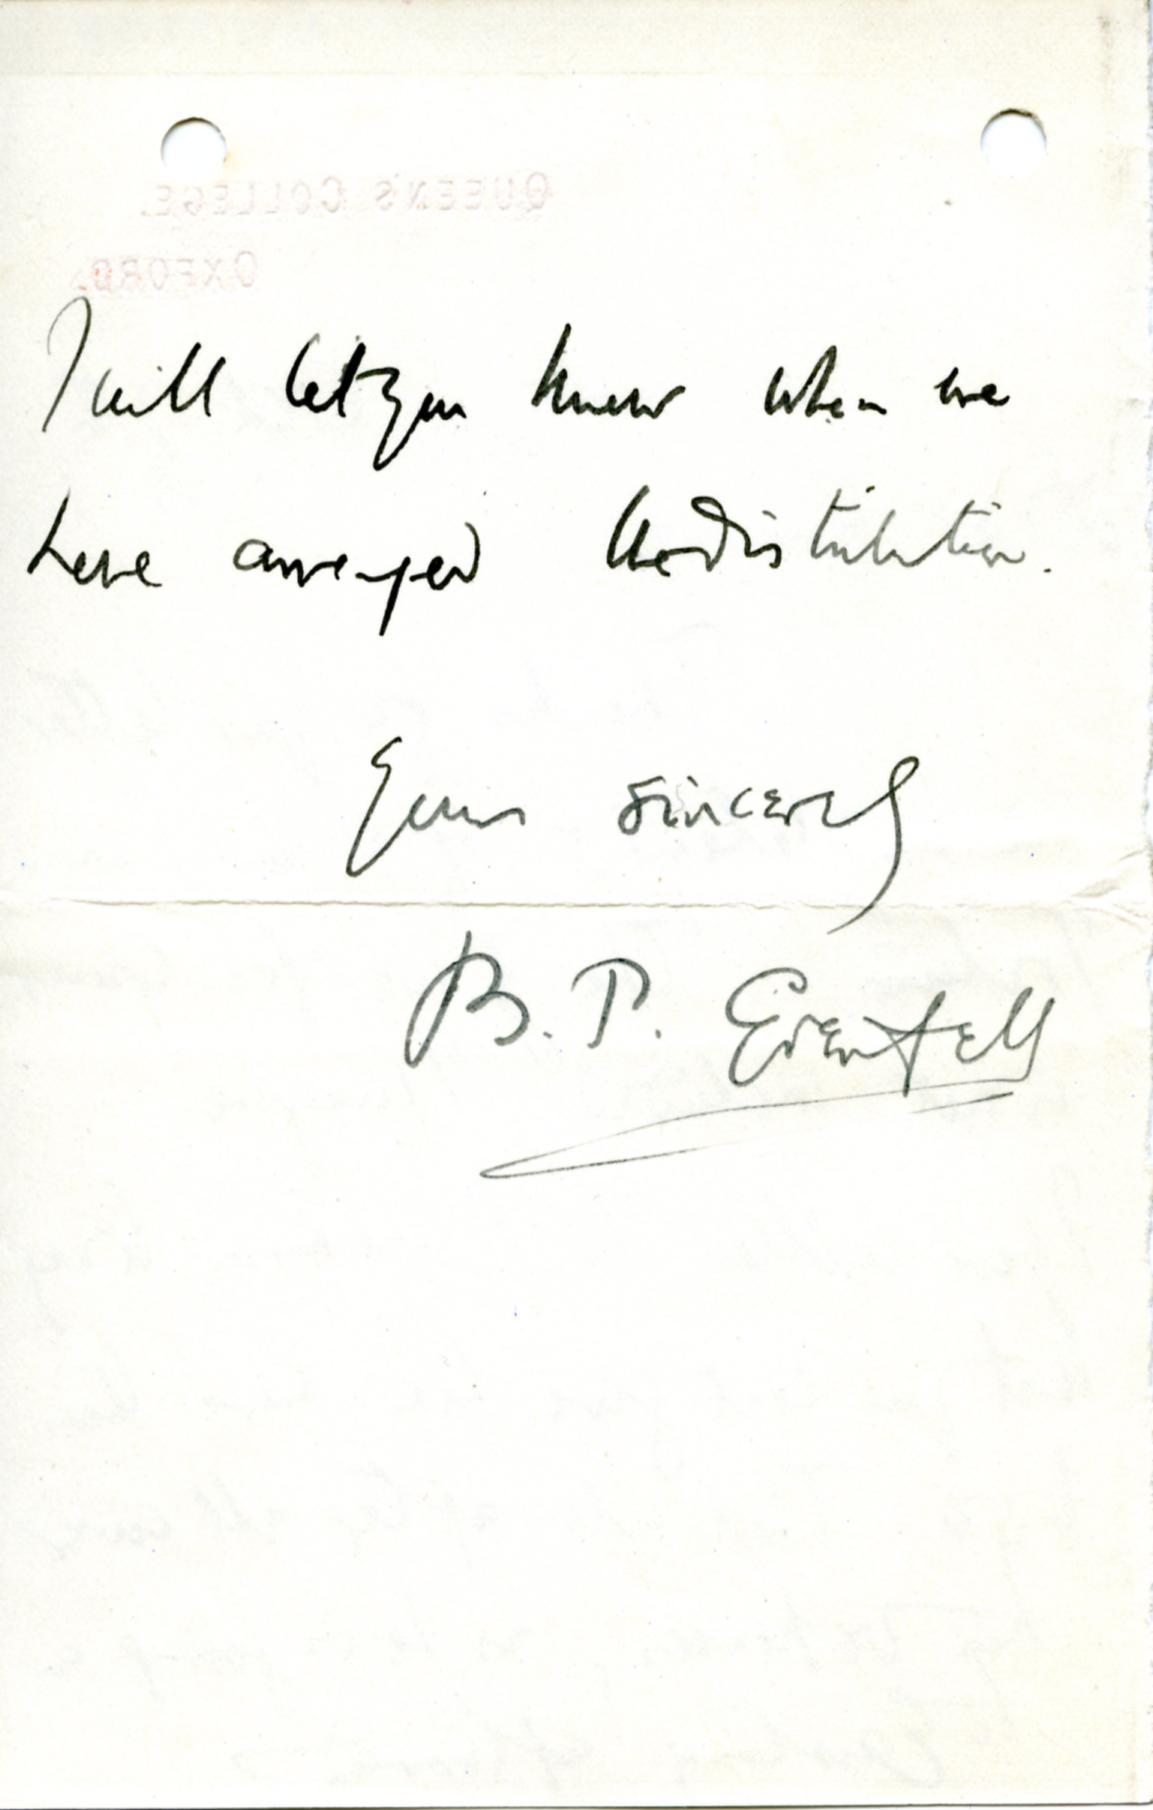 QUEEN'S COLLEGE.
OXFORD.
I will let you know when we
have arranged the distribution.
Yours sincerely
B. P. Grenfell